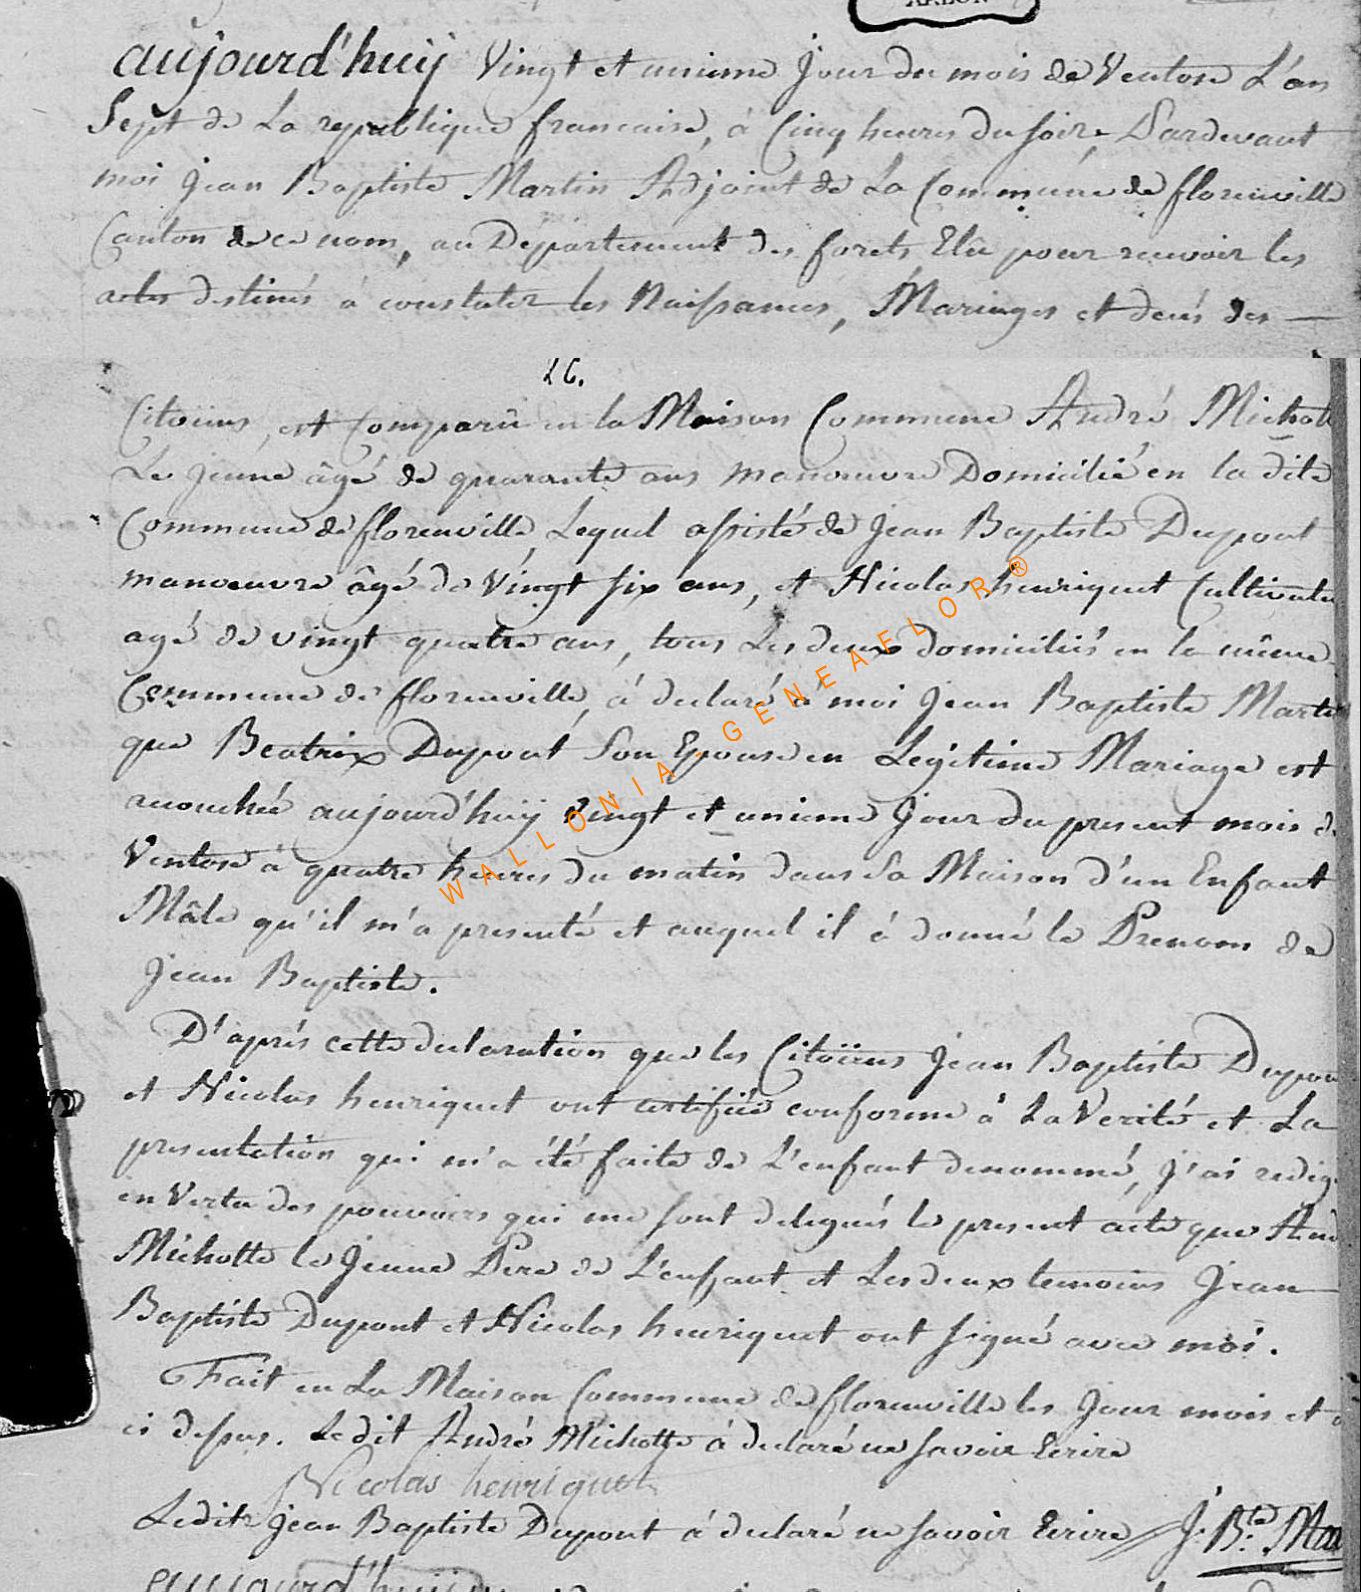 ARLON
aujourd'huÿ Vingt et unieme Jour du mois de Ventose L'an
Sept de La republique francaise, à Cinq heures du soir, Pardevant
moi Jean Baptiste Martin Adjoint de La Commune de florenville
Canton de ce nom, au Departement des forets Elû pour recevoir les
actes destinés à constater les Naissances, Mariages et decés des —
26.
Citoïens, est Comparû en la Maison Commune André Michott
Le jeune âgé de quarante ans manoeuvre Domicilié en la dite
Commune de florenville, Lequel assisté de Jean Baptiste Dupont
manoeuvre âgé de Vingt six ans, et Nicolas henriquet Cultivate
agé de vingt quatre ans, tous Les deux domiciliés en la même
Commune de florenville, à declaré à moi Jean Baptiste Marti
que Beatrix Dupont Son Epouse en Legitime Mariage est
accouchée aujourd'huÿ Vingt et unieme Jour du present mois de
Ventose à quatre heures du matin dans Sa Maison d'un Enfant
Mâle qu'il m'a presenté et auquel il à donné le Prenom de
Jean Baptiste.
D'aprés cette declaration que les Citoïens Jean Baptiste Dupon
et Nicolas henriquet ont certifiée conforme à La Verité et La
presentation qui m'a été faite de L'enfant denommé, j'ai redig
en Vertu des pouvoirs qui me sont delegués le present acte que And
Michotte le Jeune Pere de L'enfant et Les deux temoins Jean
Baptiste Dupont et Nicolas henriquet ont signé avec moi.
Fait en La Maison Commune de florenville les Jour mois et a
ci dessus. Ledit André Michotte à declaré ne savoir Ecrire
Nicolas henriquet
Ledit Jean Baptiste Dupont à declaré ne savoir Ecrire J. B.te Mar
aujourd'huÿ
WALLONIA - GENEAFLOR®